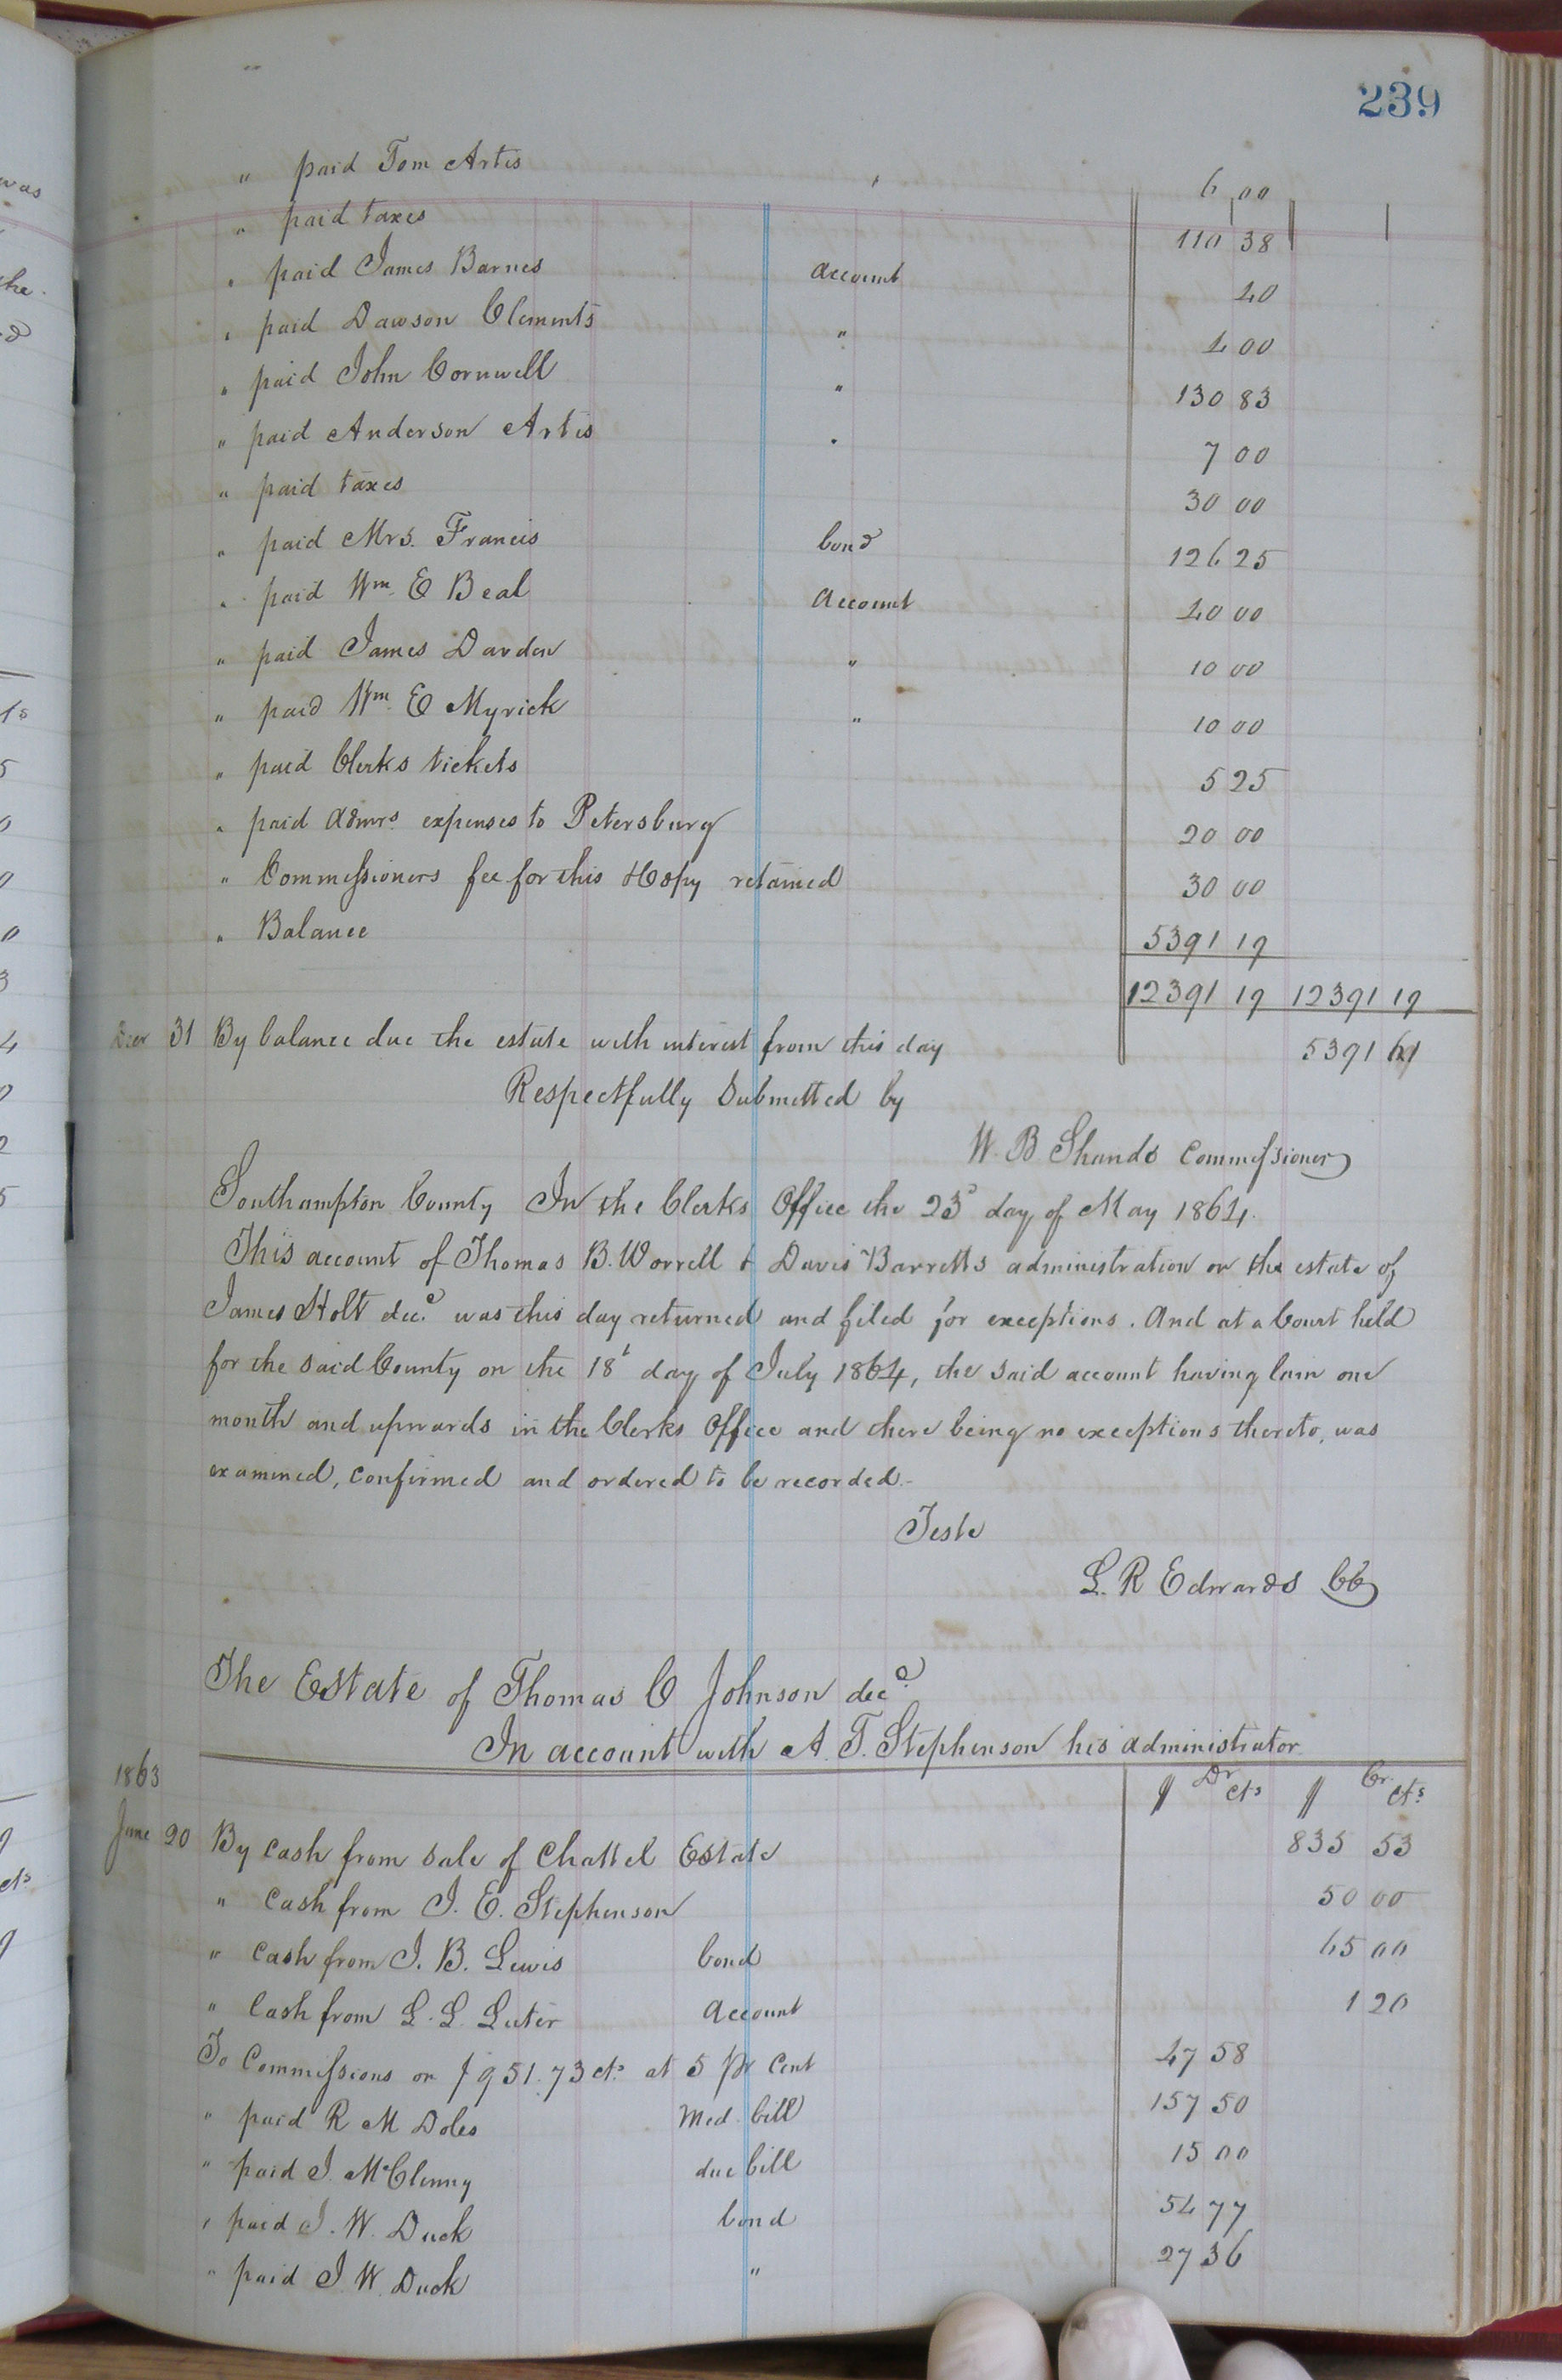 239
" paid Tom Artis 6 00
" paid taxes 110 38
" paid James Barnes Account 40
" paid Dawson Clements " 4 00
" paid John Cornwell " 130 83
" paid Anderson Artis " 7 00
" paid taxes 30 00
" paid Mrs. Francis bond 126 25
" paid Wm. E Beal Account 40 00
" paid James Darden " 10 00
" paid Wm. E Myrick " 10 00
" paid Clerks tickets 5 25
" paid Admrs. expenses to Petersburg 20 00
" Commissioners fee for this & Copy retained 30 00
" Balance 5391 19
12391 19 12391 19
Decr 31 By balance due the estate with interest from this day 5391
Respectfully Submitted by
W. B. Shands Commissioner
Southampton County In the Clerks Office the 23d day of May 1864.
This account of Thomas B. Worrell & Davis Barretts administration on the estate of
James Holt decd. was this day returned and filed for exceptions. And at a Court held
for the said County on the 18t day of July 1864, the said account having lain one
month and upwards in the Clerks Office and there being no exceptions thereto, was
examined, confirmed and ordered to be recorded.
Teste
L. R Edwards CC
The Estate of Thomas C Johnson decd.
In account with A. T. Stephenson his administrator
1863 $ Dr cts $ Cr. cts
June 20 By Cash from sale of Chattel Estate 835 53
" Cash from J. E. Stephenson 50 00
" Cash from J. B. Lewis bond 65 00
" Cash from L. L. Luter Account 1 20
To Commissions on $951.73 cts at 5 pr Cent 47 58
" paid R M Doles Med. bill 157 50
" paid J. McClenny due bill 15 00
" paid J. W. Duck bond 54 77
" paid J. W. Duck " 27 36